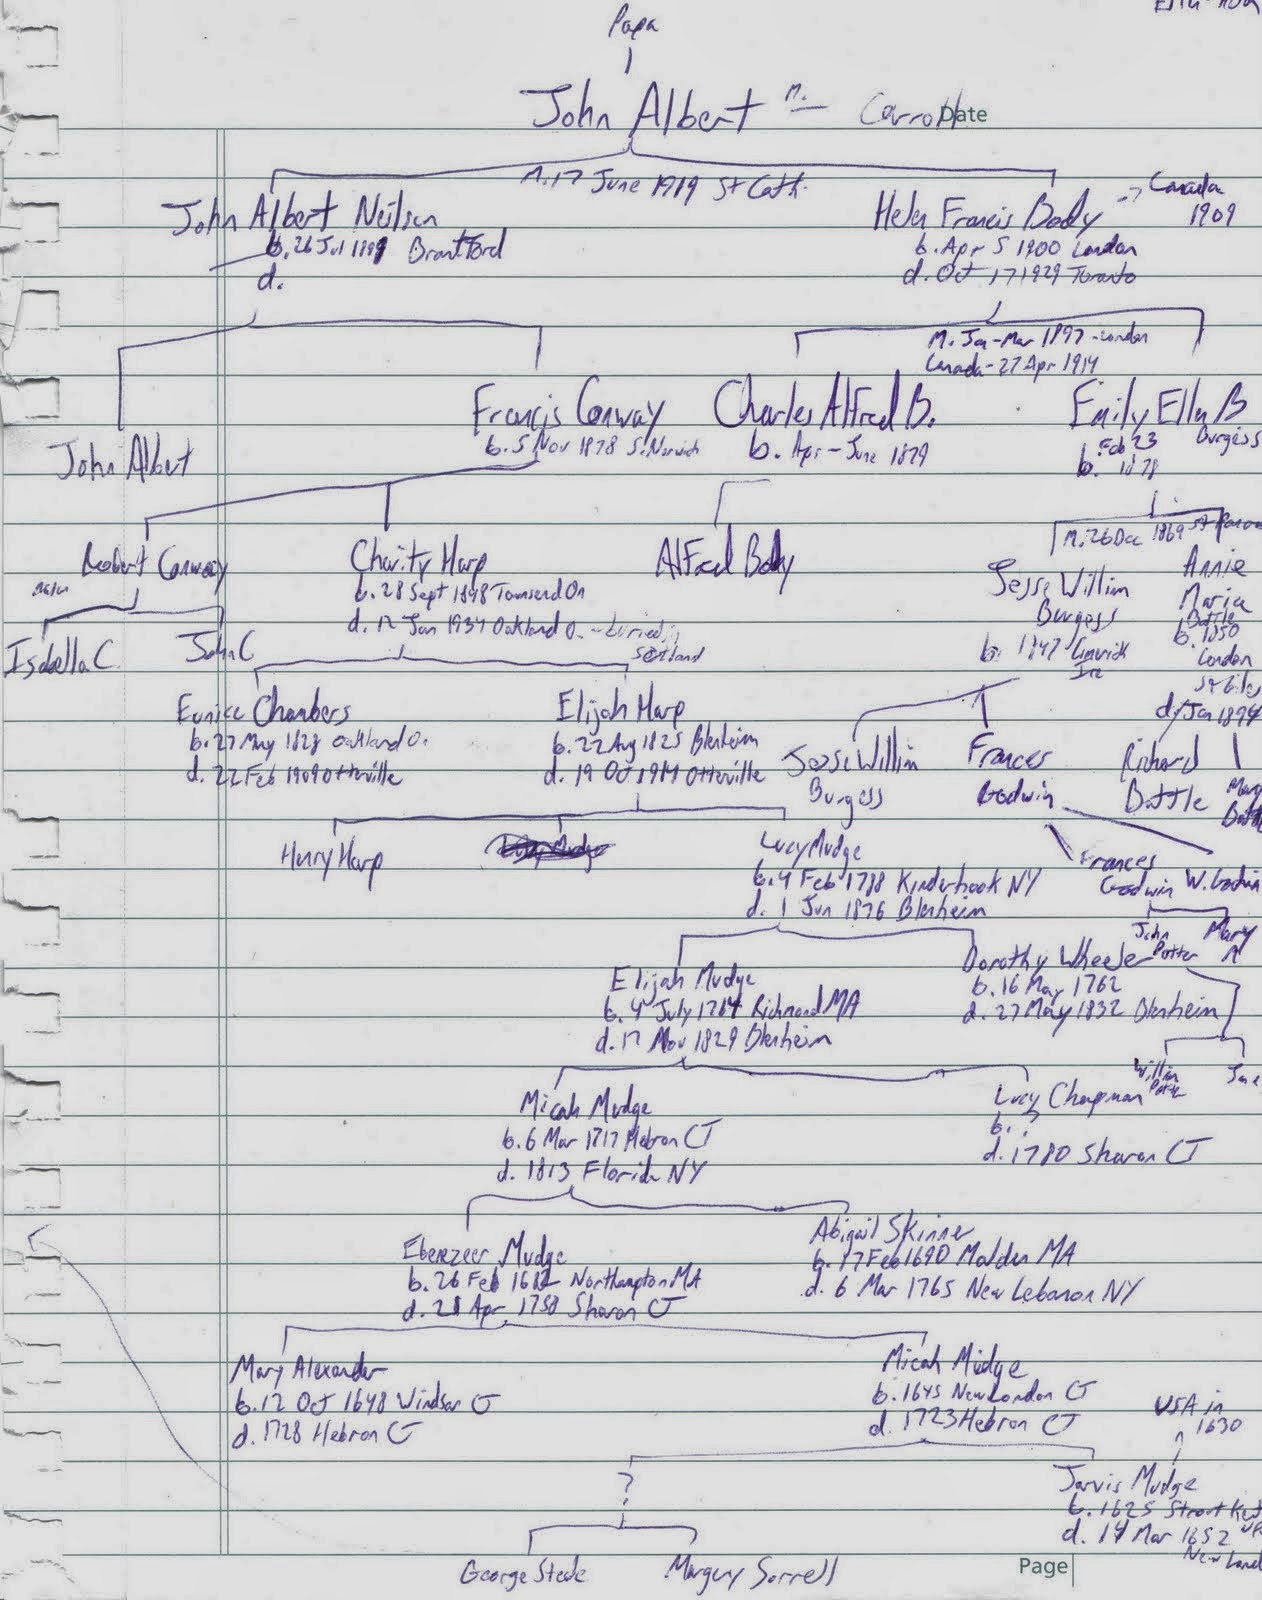 Papa
John Albert m. — Carroll
Date
m. 17 June 1919 St Cath.
John Albert Neilson
b. 26 Jul 1899 Brantford
d.
Helen Francis Body → Canada 1909
b. Apr 5 1900 London
d. Oct 17 1929 Toronto
M. Jan-Mar 1897 - London
Canada - 27 Apr 1914
John Albert
Francis Conway
b. 5 Nov 1878 S. Norwich
Charles Alfred B.
b. Apr - June 1879
Emily Ellen B
Burgess
b. Feb 23 1878
m. 26 Dec 1869
Robert Conway
Charity Harp
b. 28 Sept 1848 Townsend On
d. 12 Jan 1934 Oakland O. - buried in Scotland
Alfred Body
Jesse Willim
Burgess
b. 1847 Limerick
Ire
Annie
Maria
Battle
b. 1850
London
St Giles
d. Jan 1894
Isabella C
John C
Eunice Chambers
b. 27 May 1828 Oakland O.
d. 22 Feb 1909 Otterville
Elijah Harp
b. 22 Aug 1825 Blenheim
d. 19 Oct 1914 Otterville
Jesse Willim
Burgess
Frances
Godwin
Richard
Battle
Mary
Battle
Henry Harp
Lucy Mudge
b. 4 Feb 1788 Kinderhook NY
d. 1 Jun 1876 Blenheim
Frances
Godwin
W. Godwin
John
Potter
Mary
A
Elijah Mudge
b. 4 July 1764 Richmond MA
d. 17 Nov 1829 Blenheim
Dorothy Wheeler
b. 16 May 1762
d. 27 May 1832 Blenheim
Willim
Potter
Jane
Micah Mudge
b. 6 Mar 1717 Hebron CT
d. 1813 Florida NY
Lucy Chapman
b. ?
d. 1780 Sharon CT
Ebenezeer Mudge
b. 26 Feb 1682 Northampton MA
d. 28 Apr 1758 Sharon CT
Abigail Skinner
b. 17 Feb 1690 Malden MA
d. 6 Mar 1765 New Lebanon NY
Mary Alexander
b. 12 Oct 1648 Windsor CT
d. 1728 Hebron CT
Micah Mudge
b. 1645 New London CT
d. 1723 Hebron CT
USA in
1630
?
Jarvis Mudge
b. 1625
d. 14 Mar 1652
New Lond
George Steele
Margery Sorrell
Page